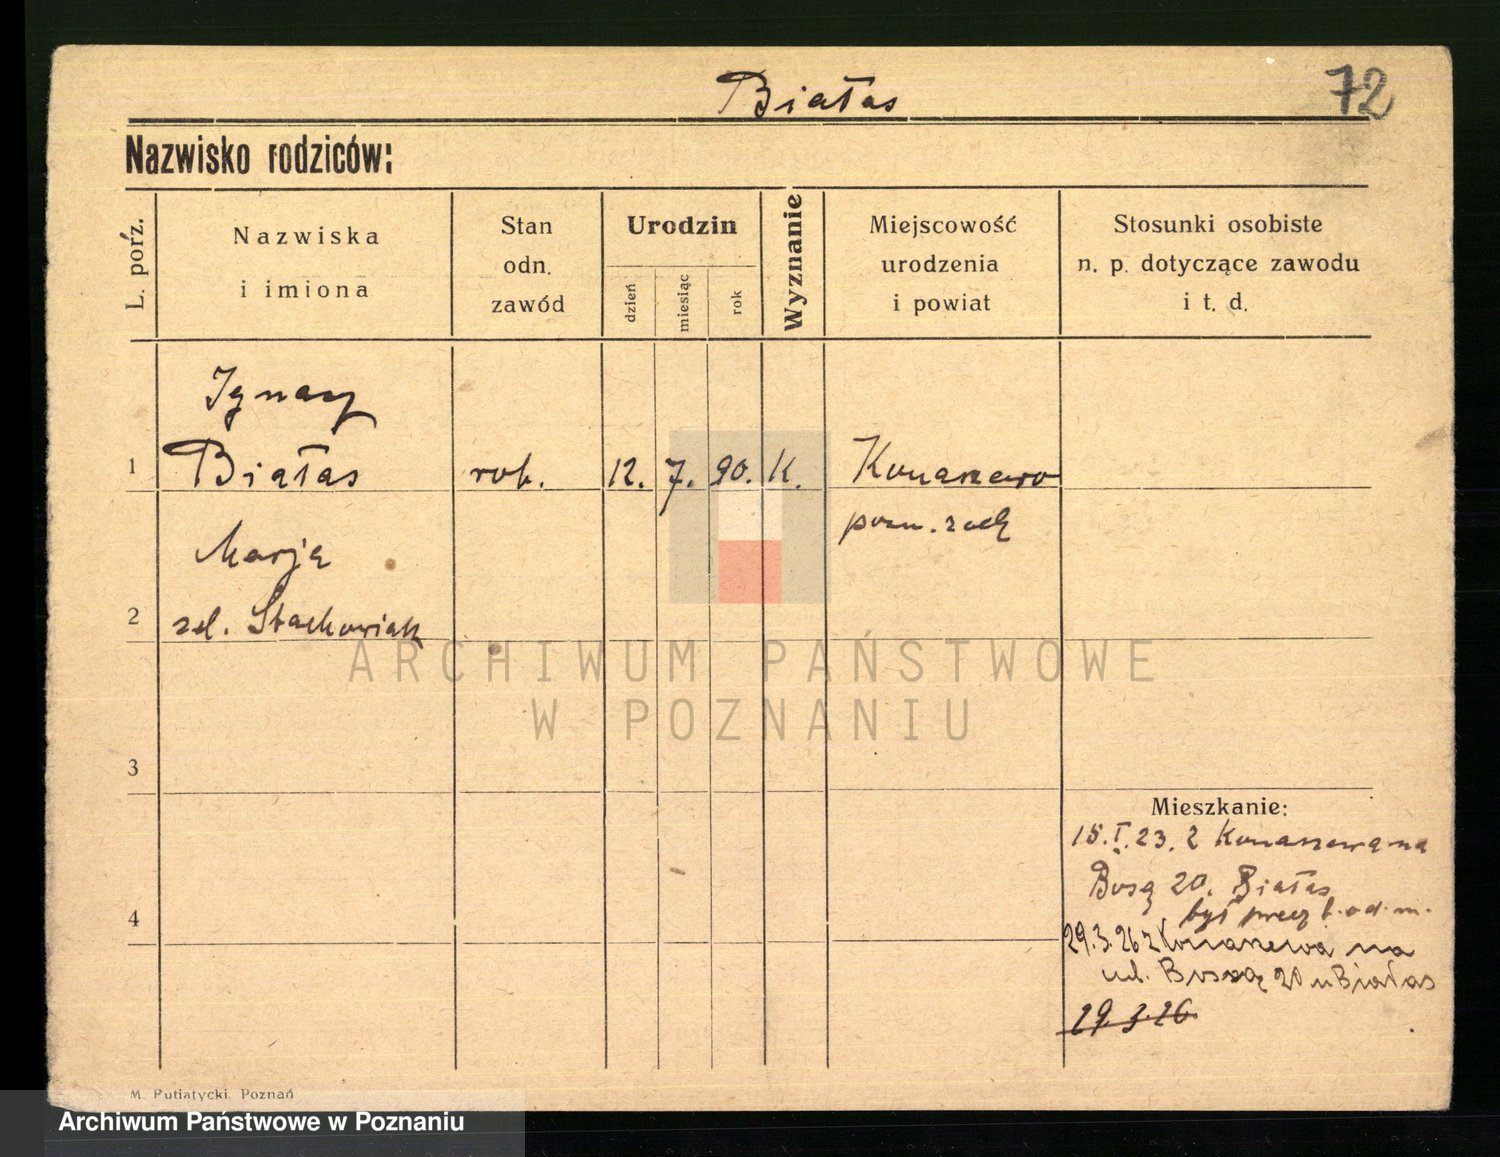 Białas
72
Nazwisko rodziców:
L. porz.
Nazwiska
i imiona
Stan
odn.
zawód
Urodzin
dzień
miesiąc
rok
Wyznanie
Miejscowość
urodzenia
i powiat
Stosunki osobiste
n. p. dotyczące zawodu
i t. d.
Ignacy
1 Białas rob. 12. 7. 90. k. Konarzewo
pozn. zach
Marja
2 Stachowiak
ARCHIWUM PAŃSTWOWE
W POZNANIU
3
Mieszkanie:
15.I.23. z Konarzewa na
Bosą 20. Białas
był
4
29.3.26 z Konarzewa na
ul. Bosą 20 u Białas
29.3.26
M. Putiatycki, Poznań
Archiwum Państwowe w Poznaniu